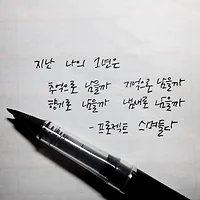 지난 나의 1년은
추억으로 남을까 기억으로 남을까
향기로 남을까 냄새로 남을까
- 프로젝트 스며들다